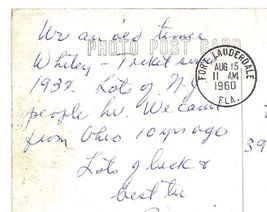 We an old timer
PHOTO POST CARD
Whitey - Ticket
1932. Lots of N.Y.
people hr. We came
from Ohio 10 yrs ago
Lots of luck &
best
FORT LAUDERDALE
AUG 15
11 AM
1960
FLA.
39